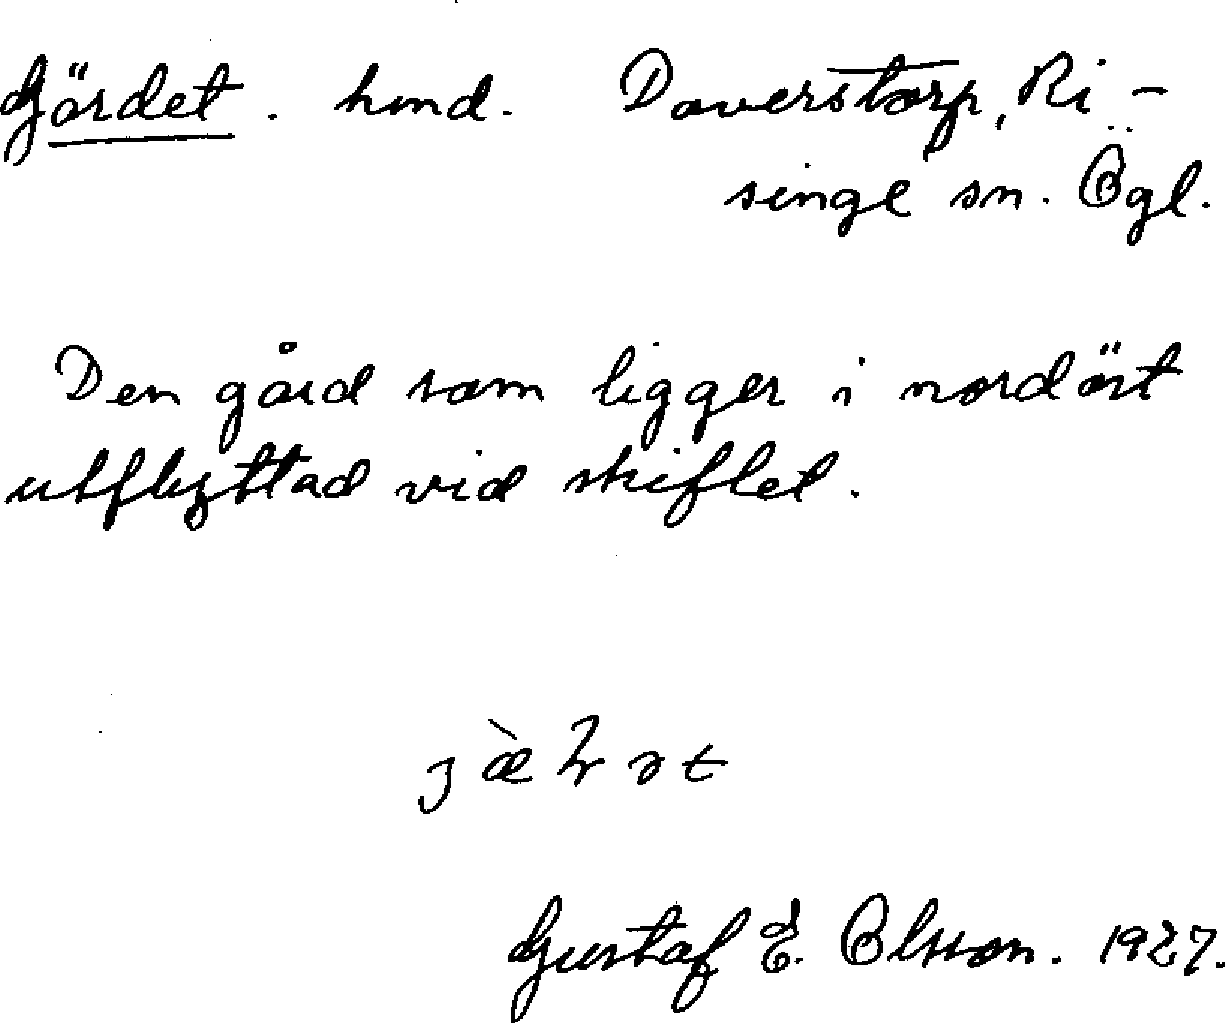 Gärdet. hmd. Daverstorp, Ri-
singe sn. Ögl.
Den gård som ligger i nordöst
utflyttad vid skiftet.
Gustaf E. Olsson. 1927.